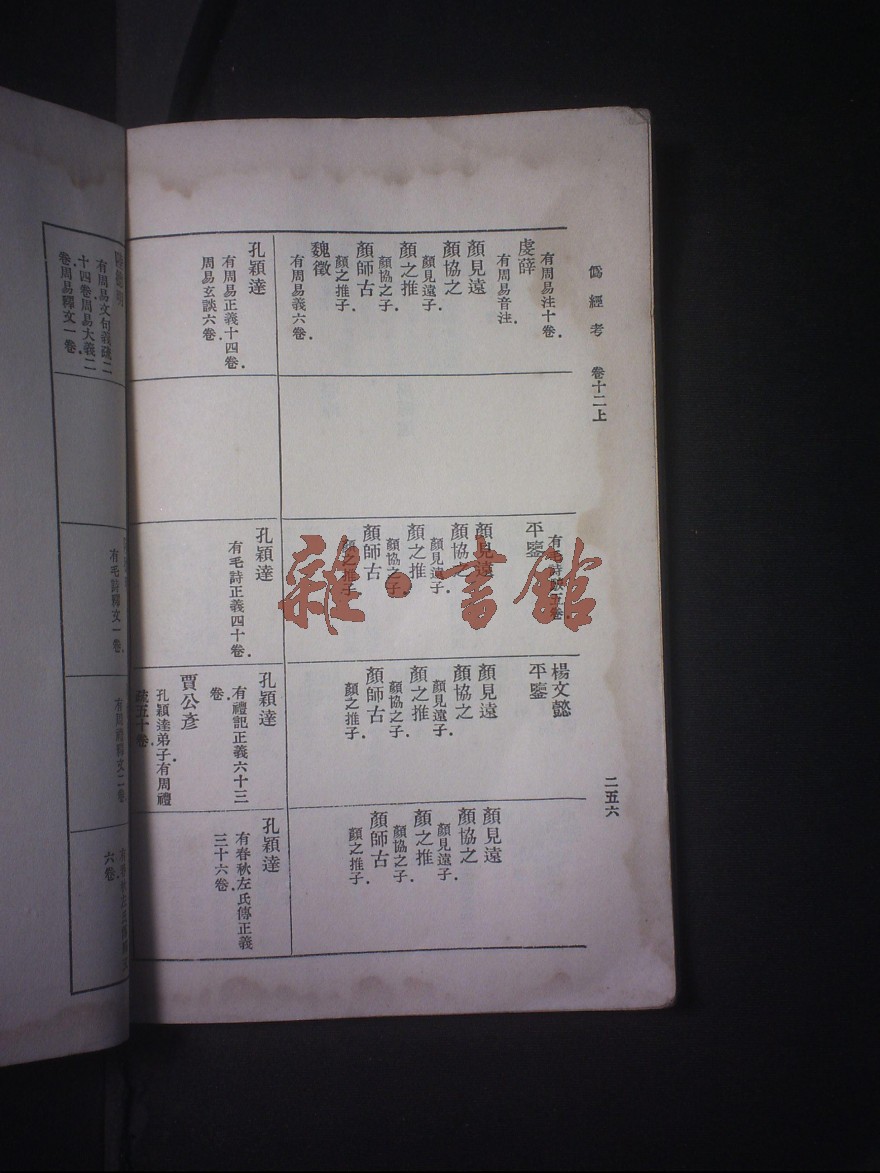 僞經考 卷十二上 二五六
有周易注十卷.
虞薛
有周易音注.
顏見遠
顏協之
顏見遠子.
顏之推
顏協之子.
顏師古
顏之推子.
魏徵
有周易義六卷.
孔穎達
有周易正義十四卷.
周易玄談六卷.
有毛詩 五卷.
平鑒
顏見遠
顏協之
顏見遠子.
顏之推
顏協之子.
顏師古
顏之推子.
孔穎達
有毛詩正義四十卷.
楊文懿
平鑒
顏見遠
顏協之
顏見遠子.
顏之推
顏協之子.
顏師古
顏之推子.
孔穎達
有禮記正義六十三
卷.
賈公彥
孔穎達弟子.有周禮
疏五十卷.
顏見遠
顏協之
顏見遠子.
顏之推
顏協之子.
顏師古
顏之推子.
孔穎達
有春秋左氏傳正義
三十六卷.
陸德明
有周易文句義疏二
十四卷.周易大義二
卷.周易釋文一卷.
有毛詩釋文一卷.
有周禮釋文二卷
六卷.
雜·書館